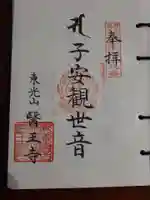 奉拝
子安觀世音
東光山
醫王寺